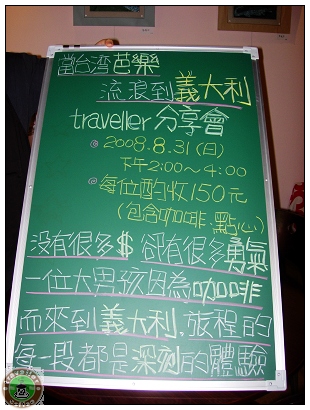 當台湾芭樂
流浪到義大利
traveller分享會
2008.8.31(日)
下午2:00~4:00
每位酌收150元
(包含咖啡.點心)
没有很多$卻有很多勇氣
一位大男孩因為咖啡
而來到義大利,旅程的
每一段都是深刻的體驗